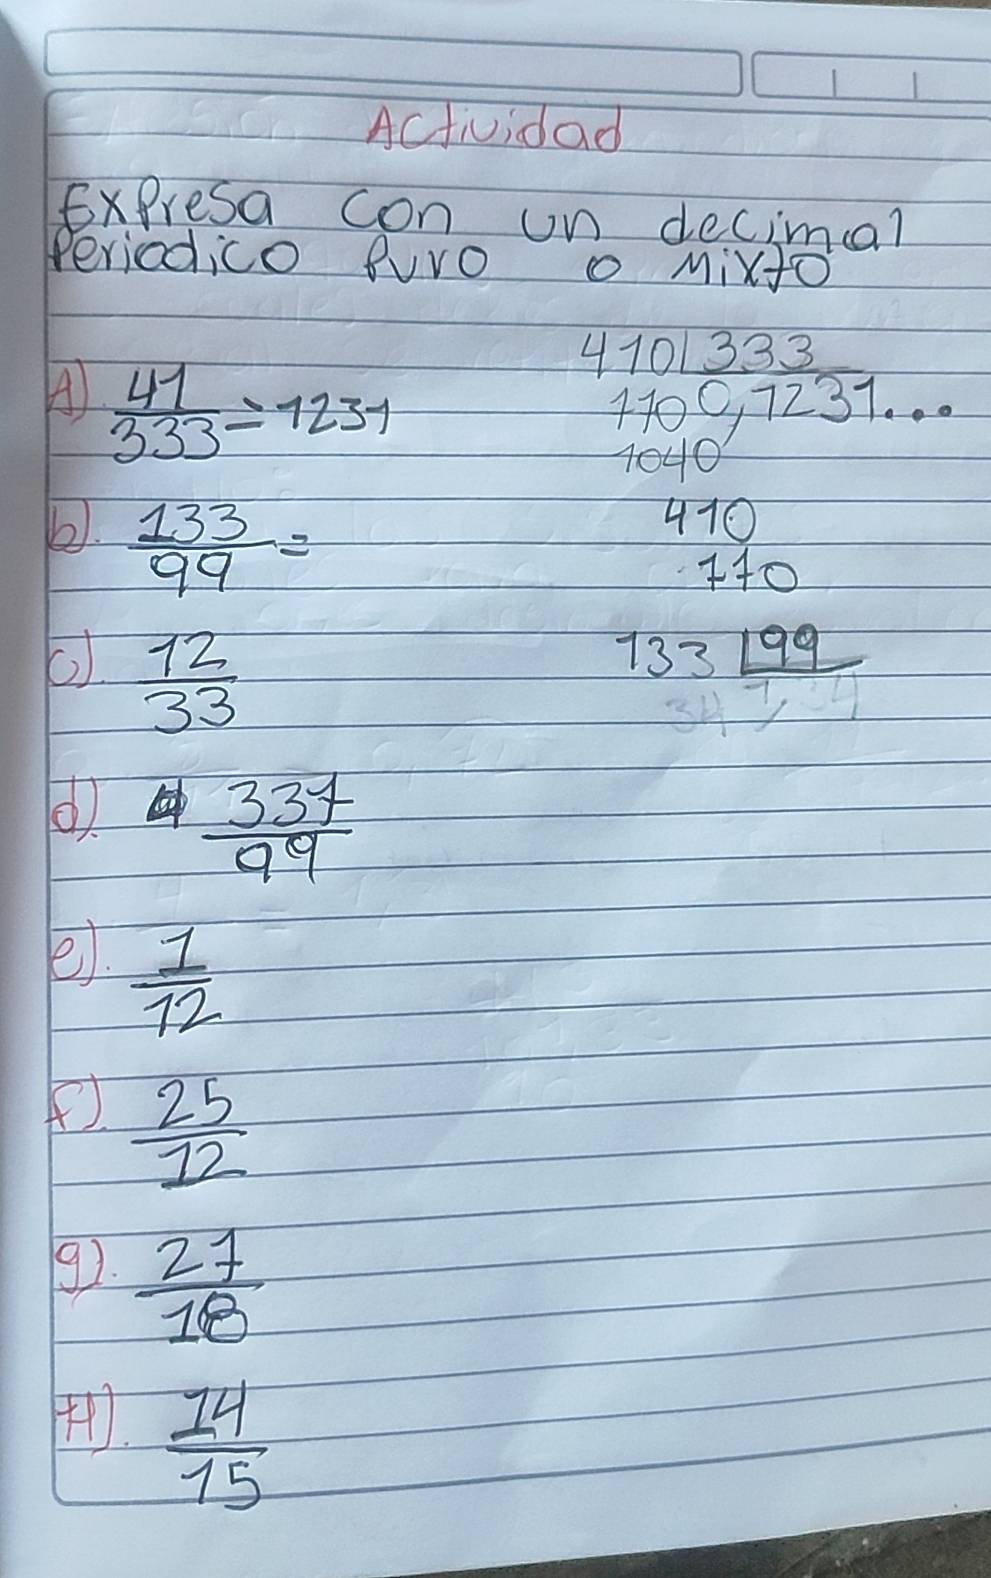 Actividad
Expresa con un decimal
Periodico Puro o Mixto
A). 41/333 = 1231
410 333
770 0,1231...
1040
410
770
b). 133/99 =
c). 12/33
133 99
34 1,34
d). 337/99
e). 1/12
f). 25/12
g). 27/18
H). 14/15